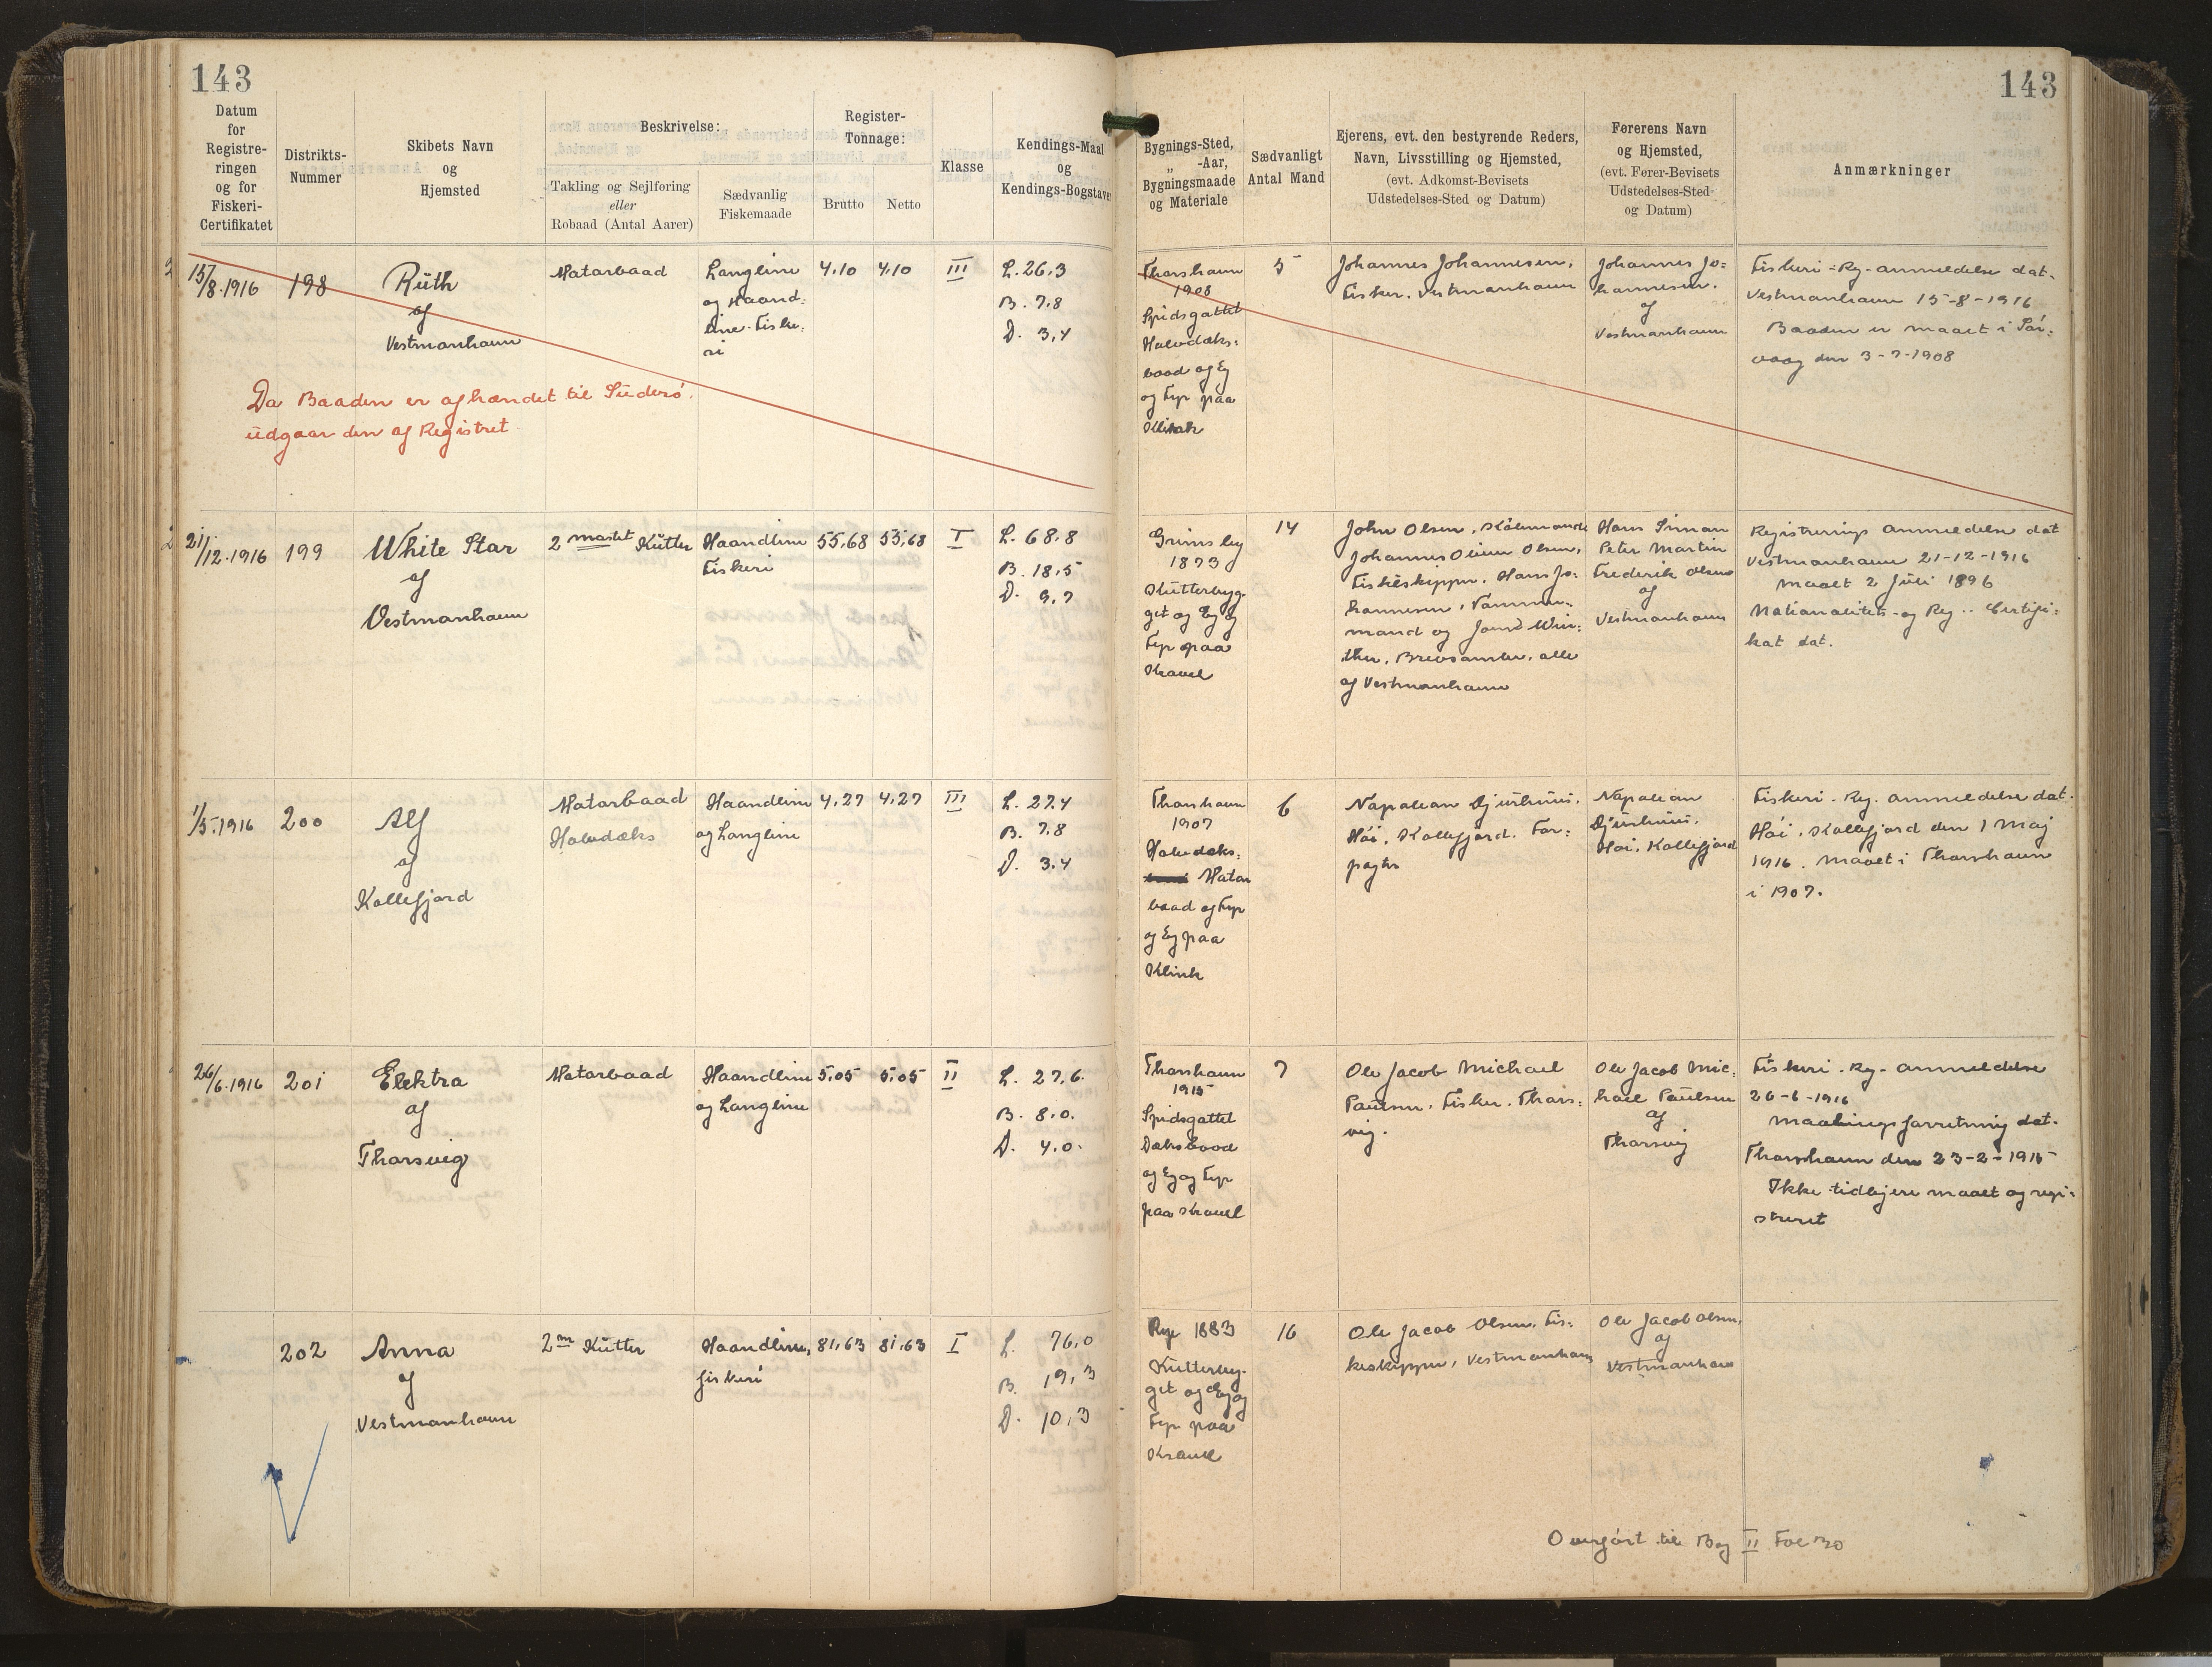 143
Datum
for
Registre-
ringen
og for
Fiskeri-
Certifikatet
Distrikts-
Nummer
Skibets Navn
og
Hjemsted
Beskrivelse:
Takling og Sejlføring
eller
Robaad (Antal Aarer)
Sædvanlig
Fiskemaade
Register-
Tonnage:
Brutto
Netto
Klasse
Kendings-Maal
og
Kendings-Bogstaver
143
Bygnings-Sted,
„ -Aar,
Bygningsmaade
og Materiale
Sædvanligt
Antal Mand
Ejerens, evt. den bestyrende Reders,
Navn, Livsstilling og Hjemsted,
(evt. Adkomst-Bevisets
Udstedelses-Sted og Datum)
Førerens Navn
og Hjemsted,
(evt. Fører-Bevisets
Udstedelses-Sted
og Datum)
Anmærkninger
15/8.1916
198
Ruth
af
Vestmanhavn
Motorbaad
Langline
og Haand-
line-Fiske-
ri
4,10
4,10
III
L. 26,3
B. 7,8
D. 3,4
Thorshavn
1908
Spidsgattet
Halvdæks-
baad og Eg
og Fyr paa
Klink
5
Johannes Johannesen,
Fisker. Vestmanhavn
Johannes Jo-
hannesen.
af
Vestmanhavn
Fiskeri-Reg-anmeldelse dat.
Vestmanhavn 15-8-1916
Baaden er maalt i Sør-
vaag den 3-7-1908
Da Baaden er afhændet til Suderø,
udgaar den af Registret
21/12.1916
199
White Star
af
Vestmanhavn
2 mastet Kutter
Haandline
Fiskeri
55,68
55,68
I
L. 68,8
B. 18,5
D. 9,7
Grimsby
1873
Kutterbyg-
get og Eg og
Fyr paa
Kravel
14
John Olsen, Købmand
Johannes Olsen,
Fiskeskipper, Hans Jo-
hannesen, Tømmer-
mand og Joen Win-
ther, Brevsamler, alle
af Vestmanhavn
Hans Simon
Peter Martin
Frederik Olsen
af
Vestmanhavn
Registrerings anmeldelse dat
Vestmanhavn 21-12-1916
maalt 2 Juli 1896
Nationalitets- og Reg.- Certifi-
kat dat.
1/5.1916
200
Alf
af
Kollefjord
Motorbaad
Halvdæks
Haandline
og Langline
4,27
4,27
III
L. 27,4
B. 7,8
D. 3,4
Thorshavn
1907
Halvdæks-
Motor
baad og Fyr
og Eg paa
Klink
6
Napolean Djurhuus,
Hói, Kollefjord. For-
pagter
Napolean
Djurhuus,
Hoi, Kollefjord
Fiskeri-Reg. anmeldelse dat.
Hói, Kollefjord den 1 Maj
1916. maalt i Thorshavn
i 1907.
26/6.1916
201
Elektra
af
Thorsvig
Motorbaad
Haandline
og Langline
5,05
5,05
II
L. 27,6.
B. 8,0.
D. 4,0.
Thorshavn
1915
Spidsgattet
Dæksbaad
og Eg og Fyr
paa Kravel
7
Ole Jacob Michael
Paulsen, Fisker. Thors-
vig.
Ole Jacob Mic-
hael Paulsen
af
Thorsvig
Fiskeri-Reg-anmeldelse
26-6-1916
maalingsforretning dat.
Thorshavn den 23-2-1915
Ikke tidligere maalt og regi-
streret
202
Anna
af
Vestmanhavn
2m Kutter
Haandline,
fiskeri
81,63
81,63
I
L. 76,0
B. 19,3
D. 10,3
Rye 1883
Kutterbyg-
get og Eg og
Fyr paa
Kravel
16
Ole Jacob Olsen, Fis-
keskipper, Vestmanhavn
Ole Jacob Olsen,
af
Vestmanhavn
Overført til Bog II Fol 30